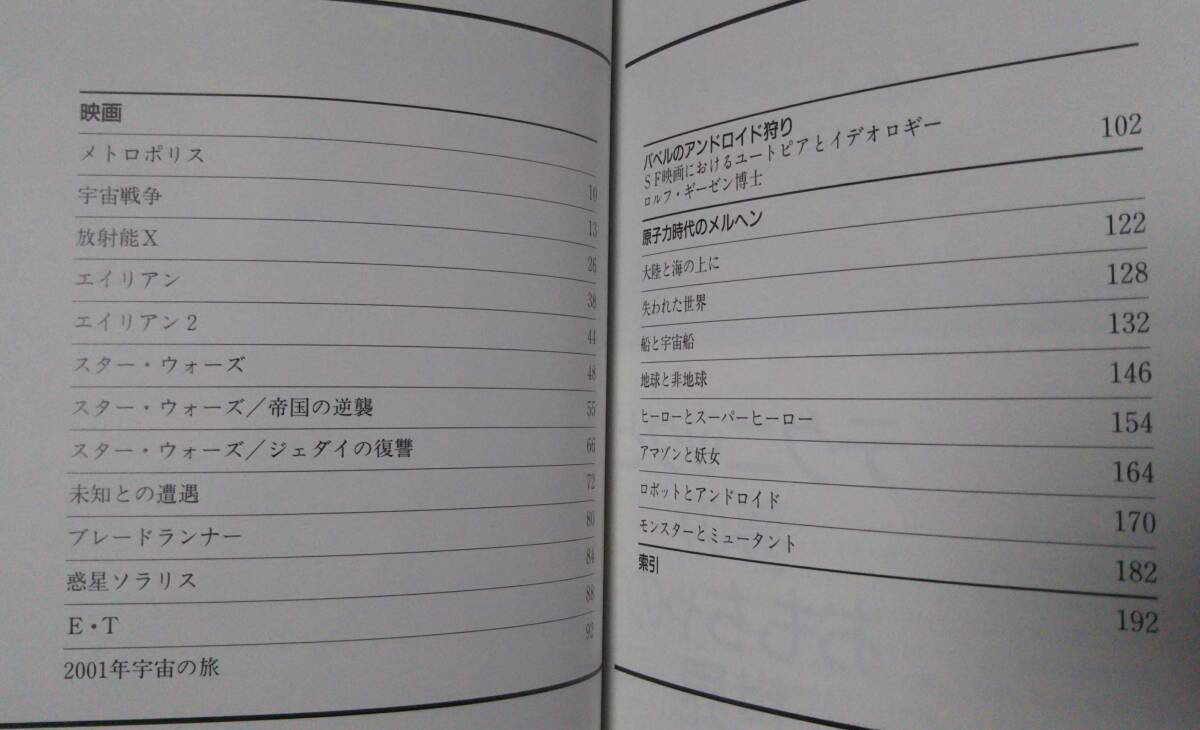 映画
メトロポリス 10
宇宙戦争 13
放射能X 26
エイリアン 38
エイリアン2 44
スター・ウォーズ 48
スター・ウォーズ/帝国の逆襲 55
スター・ウォーズ/ジェダイの復讐 66
未知との遭遇 72
ブレードランナー 80
惑星ソラリス 84
E・T 88
2001年宇宙の旅 92
バベルのアンドロイド狩り
SF映画におけるユートピアとイデオロギー 102
ロルフ・ギーゼン博士
原子力時代のメルヘン
大陸と海の上に 122
失われた世界 128
船と宇宙船 132
地球と非地球 146
ヒーローとスーパーヒーロー 154
アマゾンと妖女 164
ロボットとアンドロイド 170
モンスターとミュータント 182
索引 192